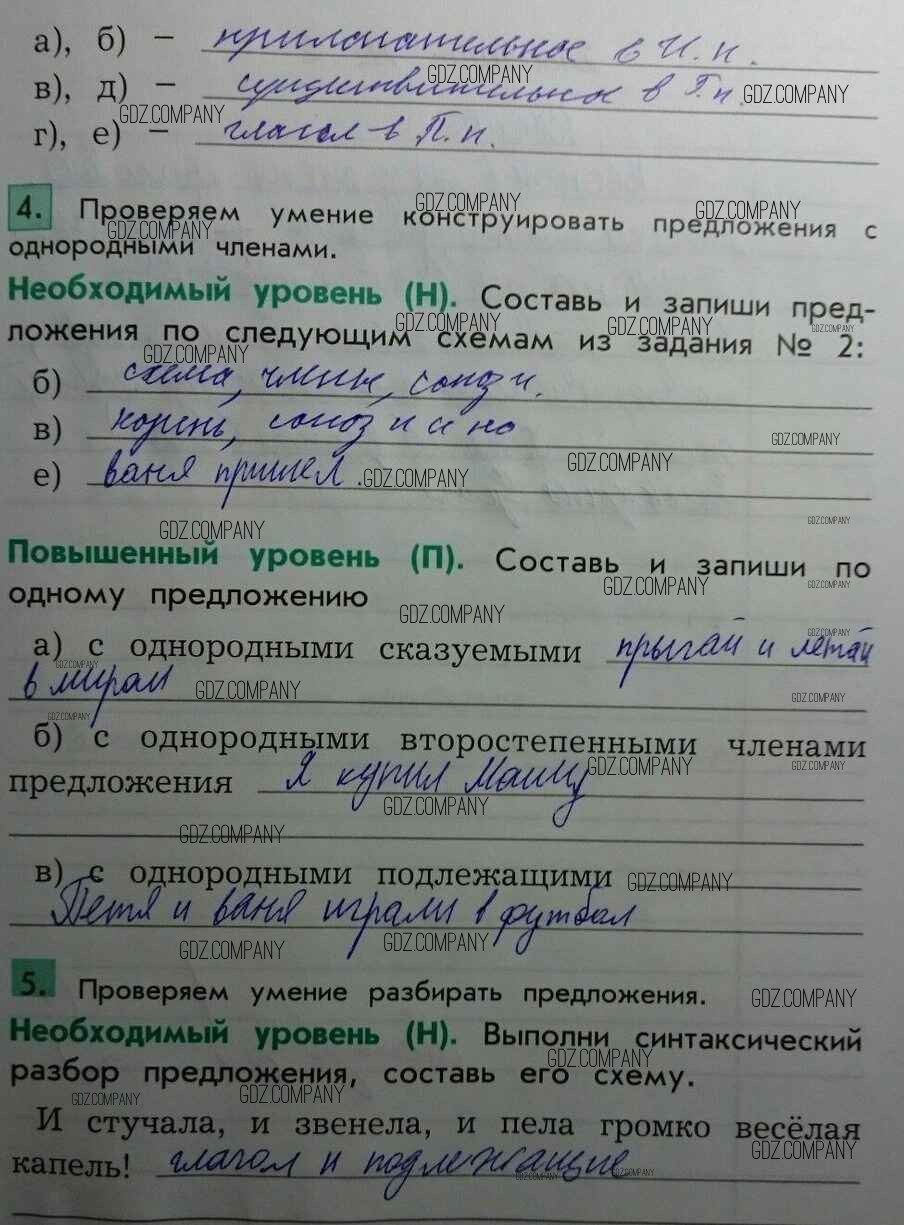 а), б) – прилогательное в И.п.
в), д) – существительное в Г.п.
г), е) – глагол в П.п.
4. Проверяем умение конструировать предложения с
однородными членами.
Необходимый уровень (Н). Составь и запиши пред-
ложения по следующим схемам из задания № 2:
б) схема, члены, союз и.
в) корень, союз и и но
е) ваня пришел.
Повышенный уровень (П). Составь и запиши по
одному предложению
а) с однородными сказуемыми прыгай и летай
в мирам
б) с однородными второстепенными членами
предложения Я купил Машу
в) с однородными подлежащими
Петя и ваня играли в футбол
5. Проверяем умение разбирать предложения.
Необходимый уровень (Н). Выполни синтаксический
разбор предложения, составь его схему.
И стучала, и звенела, и пела громко весёлая
капель! глагол и подлежащие
GDZ.COMPANY